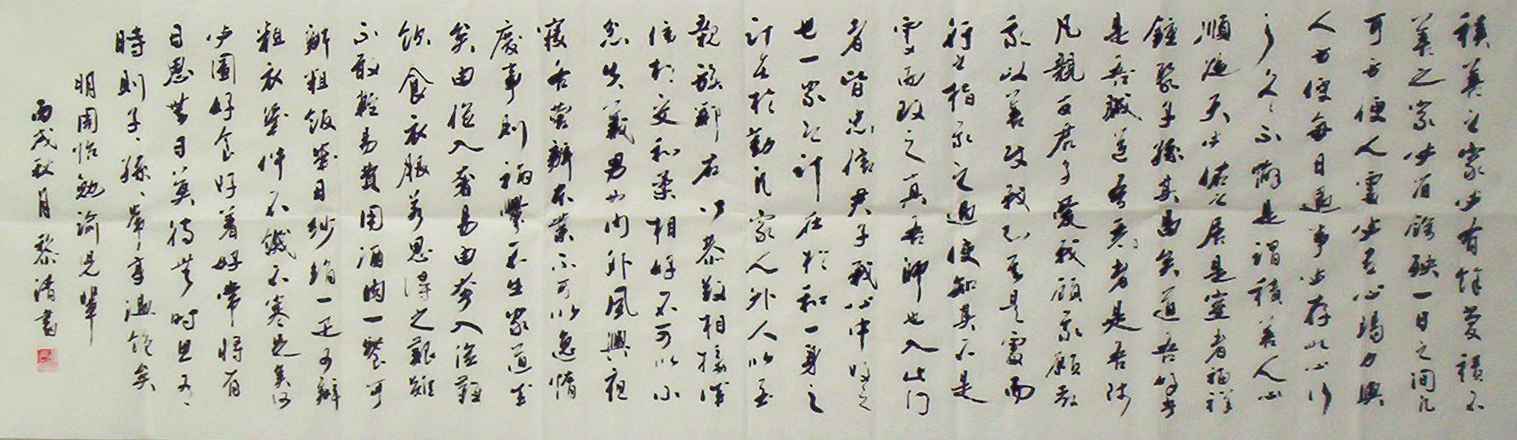 積善之家必有餘慶積不
善之家必有餘殃一日之間凡
可方便人處必盡心竭力與
人方便每日遇事必存此心行
之久久不懈是謂積善人心
順適天必佑之居是室者福祥
鍾聚子孫其昌矣道吾好者
是吾賊道吾惡者是吾師
凡親百君子愛我顧我願教
我以善攻我不是處而
行之指我之過使知其不是
處而改之真吾師也入此門
者皆忠信君子我心中
也一家之計在於和一身之
計在於勤凡家人外人以至
親族鄰右以恭敬相接謙
信相交和柔相好不可以小
忿失義男女內外夙興夜
寐各營辦本業不可以怠惰
廢事則禍釁不生家道成
矣由儉入奢易由奢入儉難
飲食衣服若思得之艱難
不敢輕易費用酒肉一餐可
辦粗飯幾日紗絹一疋可辦
粗衣幾件不饑不寒足矣何
必圖好食好著常將有
日思無日莫待無時思有
時則子子孫孫常享溫飽矣
明周怡勉諭兒輩
丙戌秋月黎清書